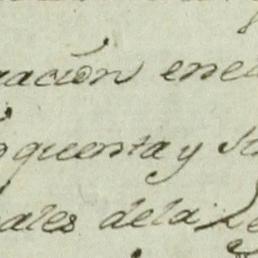 ración enel
quenta y
ales dela Le